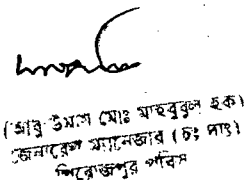 (আবু উমাল মোঃ মাহবুবুল হক)
জেনারেল ম্যানেজার (চঃ দাঃ)
পিরোজপুর পবিস